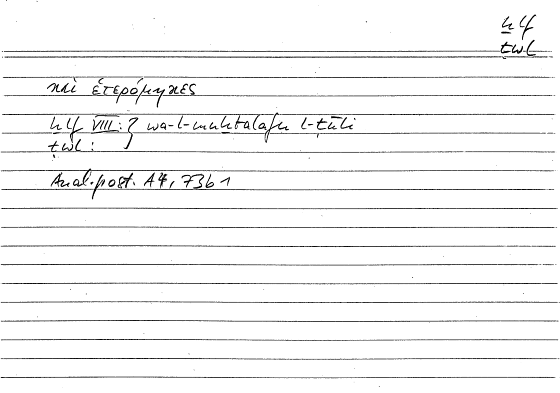 ḫlf
ṭwl
καὶ ἑτερόμηκες
ḫlf VIII: } wa-l-muḫtalafu l-ṭūli
ṭwl: }
Anal. post. A4, 73b1